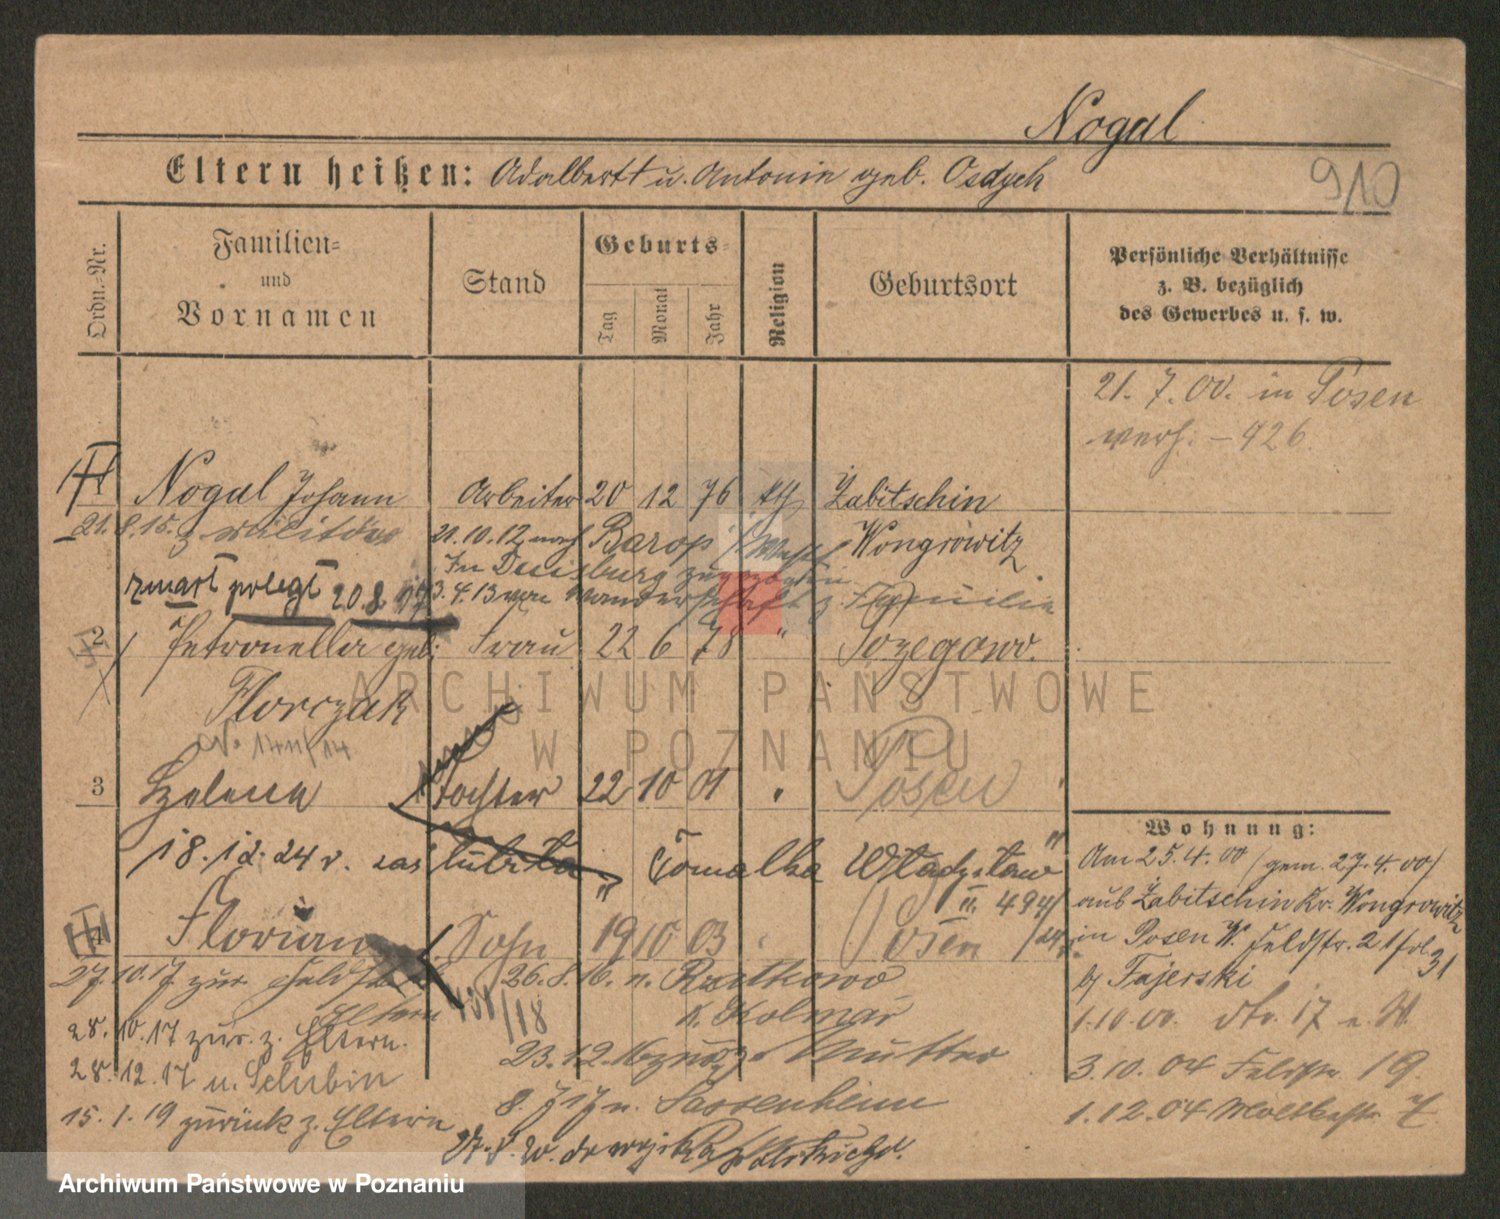 Nogal
Eltern heißen: Adalbert u. Antonie geb. Osdych
910
Ordn.-Nr.
Familien-
und
Vornamen
Stand
Geburts-
Tag
Monat
Jahr
Religion
Geburtsort
Persönliche Verhältnisse
z. B. bezüglich
des Gewerbes u. s. w.
21. 7. 00. in Posen
verh. – 926
Nogal Johann Arbeiter 20 12 76 kth Zabitschin
21. 8. 15. z Militär 21. 10. 12 nach Barop /Westf Wongrowitz
In Duisburg zugezogen
zmarł poległ 20.8.17 3. 4. 13 von Wanderschaft z. Familie
2 Petronella geb. Frau 22 6 78 "
Florczak
No 1411/14
3 Helena Tochter 22 10 01 Posen
18. 12. 24 r. Tomalka Władysław
II. 494/
4 Florian Sohn 19 10 03 Posen
27. 10. 17. zur.
Eltern
28. 10. 17 zur. z. Eltern.
28. 12. 17 n. Schubin
15. 1. 19 zurück z. Eltern
26. 8. 16. n.
K. Kolmar
23. 12. 16 zur z. Mutter
8. 7 17 n. Sassenheim
Wohnung:
Am 25. 4. 00 /gem. 27. 4. 00/
aus Zabitschin Kr. Wongrowitz
in Posen W. Feldstr. 21
b/ Fajerski
31
1. 10. 00. dto. 17
3. 10. 04 Feldstr. 19.
1. 12. 04 Moltkestr. 7
ARCHIWUM PAŃSTWOWE
W POZNANIU
Archiwum Państwowe w Poznaniu